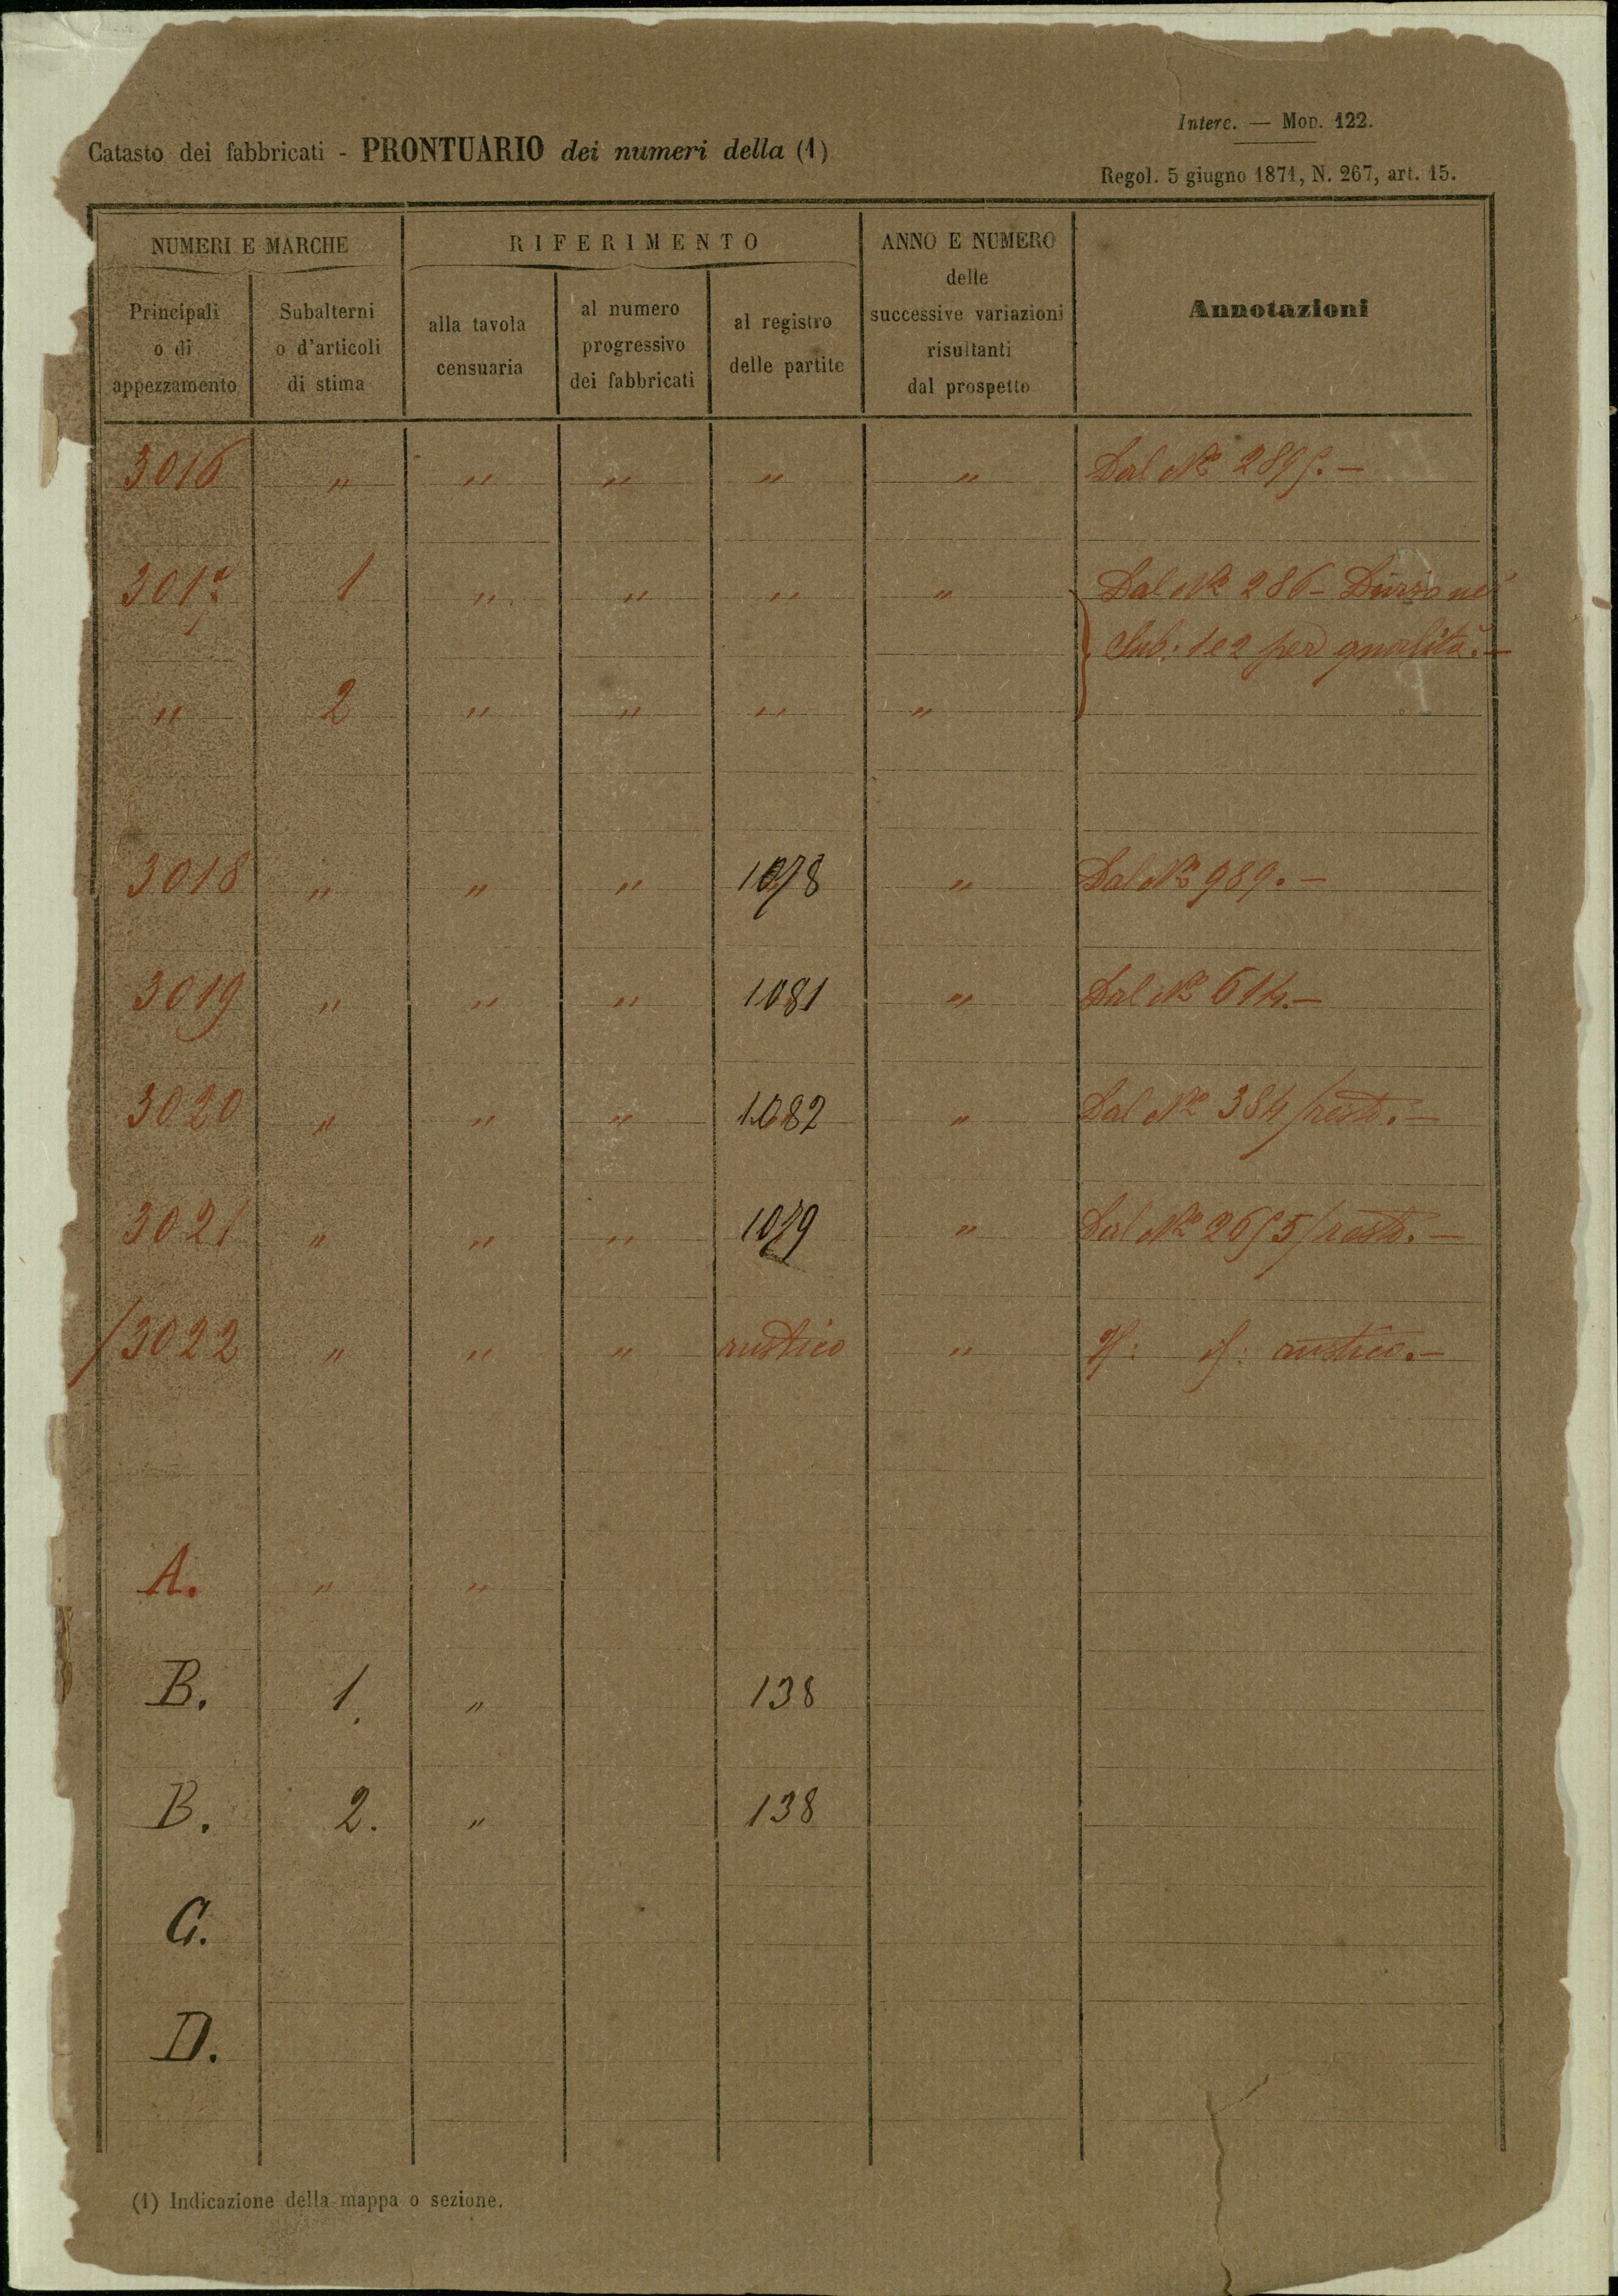 Interc. — Mod. 122.
Catasto dei fabbricati - PRONTUARIO dei numeri della (1)
Regol. 5 giugno 1871, N. 267, art. 15.
NUMERI E MARCHE
RIFERIMENTO
ANNO E NUMERO
delle
successive variazioni
risultanti
dal prospetto
Annotazioni
Principali
o di
appezzamento
Subalterni
o d'articoli
di stima
alla tavola
censuaria
al numero
progressivo
dei fabbricati
al registro
delle partite
3016 " " " " " Dal No 2897. —
3017 1 " " " " Dal No 286 - nei
Sub: 1 e 2 per qualità. —
" 2 " " " "
3018 " " " 1078 " Dal No 989. —
3019 " " " 1081 " Dal No 614. —
3020 " " " 1082 " Dal No 384/resto. —
3021 " " " 1079 " Dal No 2675/resto. —
/3022 " " " rustico " rustico. —
A. " "
B. 1. " 138
B. 2. " 138
C.
D.
(1) Indicazione della mappa o sezione.